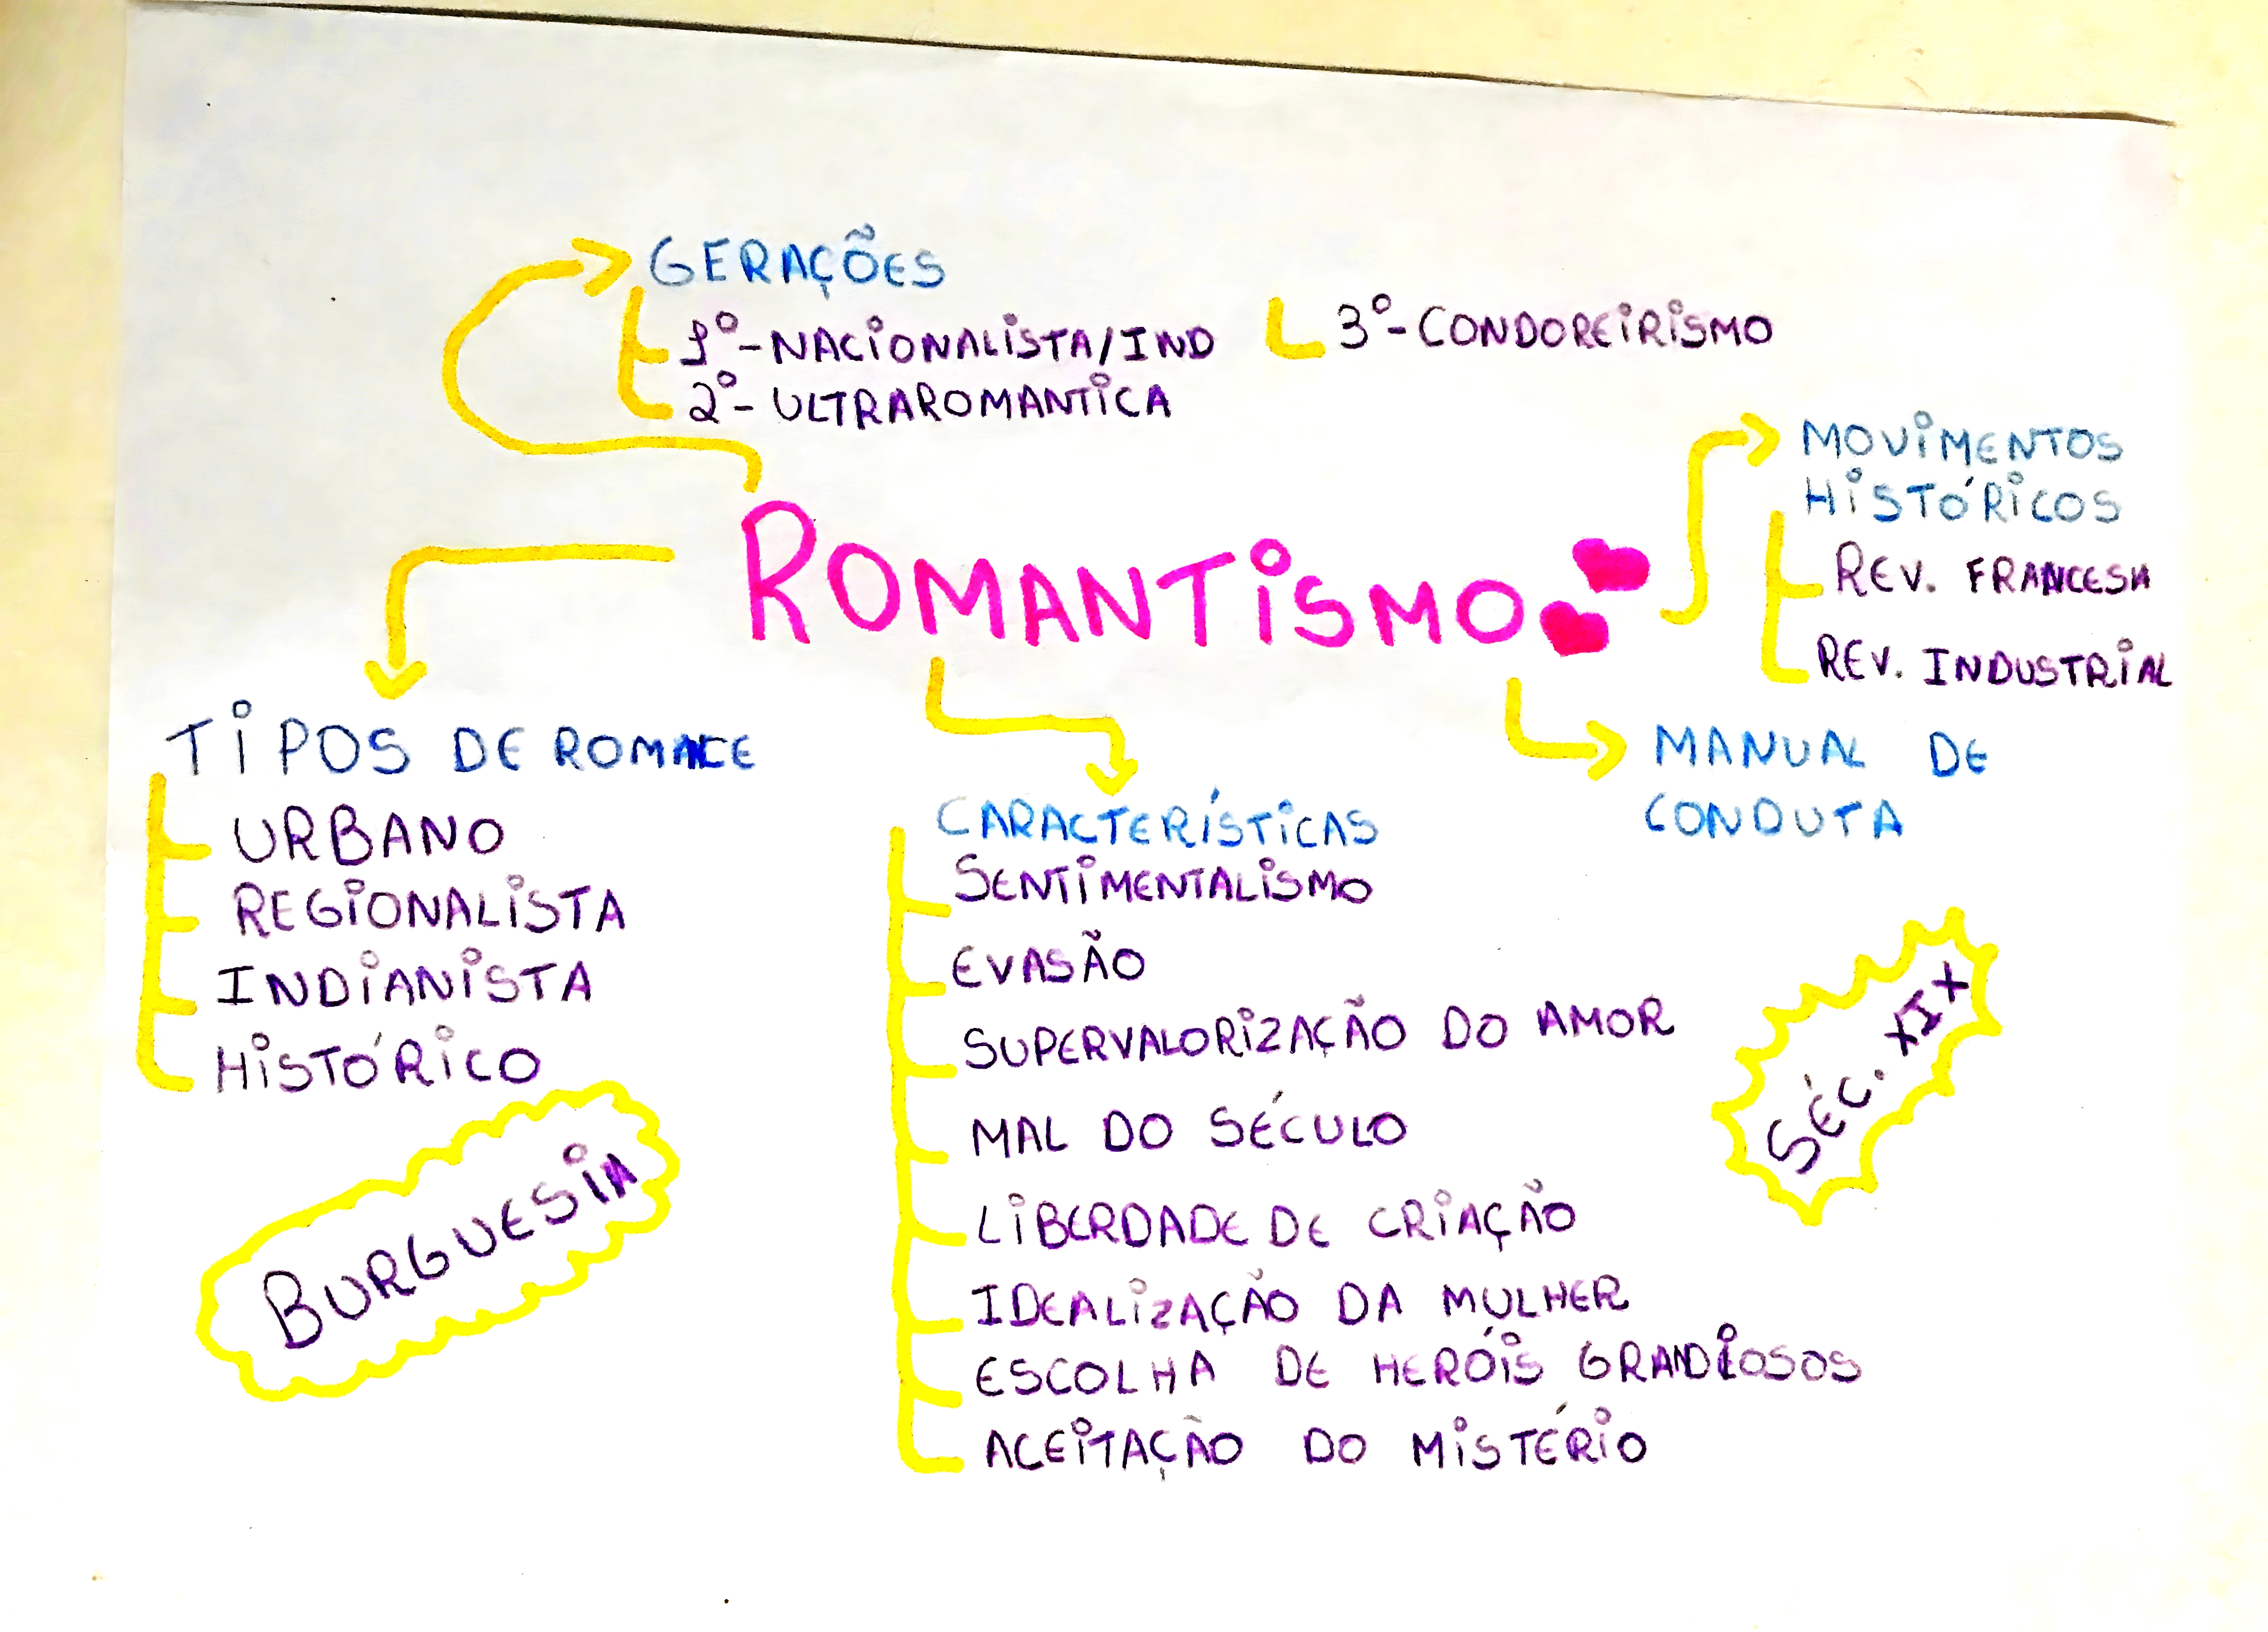 GERAÇÕES
1º-NACIONALISTA/IND
2º- ULTRAROMANTICA
3º-CONDOREIRISMO
MOVIMENTOS
HISTÓRICOS
REV. FRANCESA
REV. INDUSTRIAL
ROMANTISMO
MANUAL DE
CONDUTA
TIPOS DE ROMACE
URBANO
REGIONALISTA
INDIANISTA
HISTÓRICO
CARACTERÍSTICAS
SENTIMENTALISMO
EVASÃO
SUPERVALORIZAÇÃO DO AMOR
MAL DO SÉCULO
LIBERDADE DE CRIAÇÃO
IDEALIZAÇÃO DA MULHER
ESCOLHA DE HERÓIS GRANDIOSOS
ACEITAÇÃO DO MISTÉRIO
SÉC. XIX
BURGUESIA